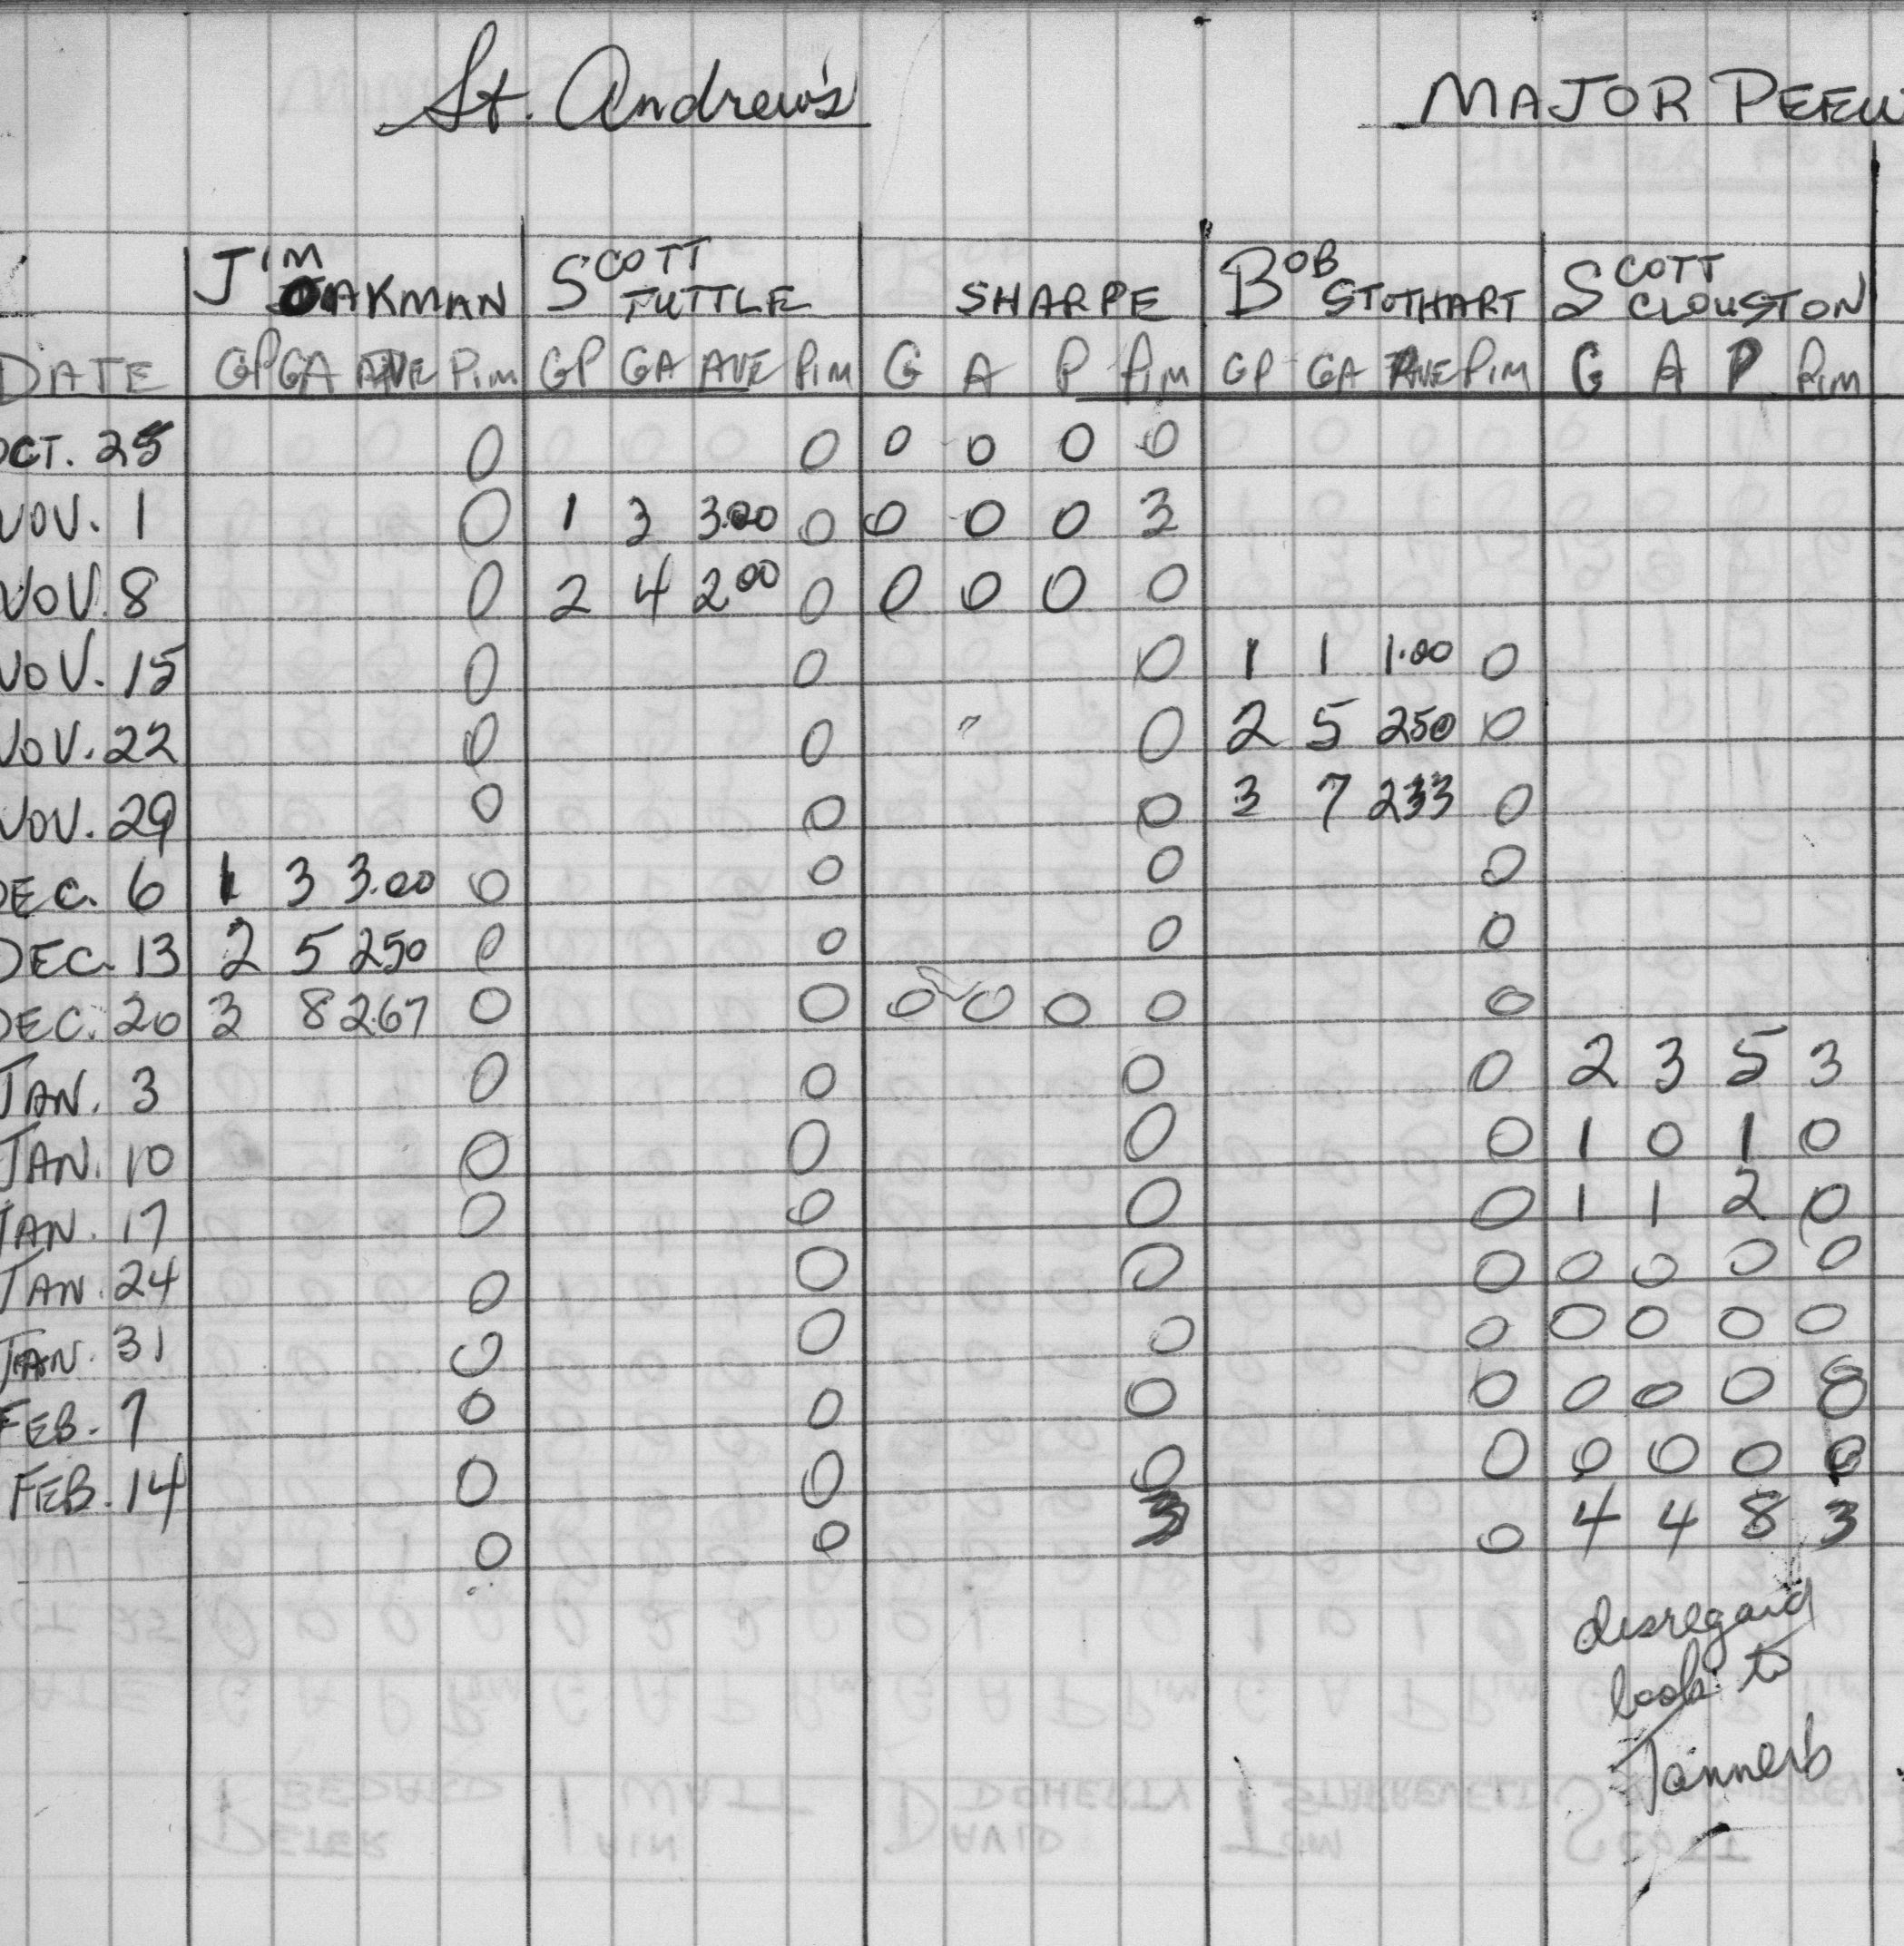 St. Andrew's MAJOR PEEW
JIM OAKMAN SCOTT TUTTLE SHARPE BOB STOTHART SCOTT CLOUSTON
DATE GP GA AVE PIM GP GA AVE PIM G A P PIM GP GA AVE PIM G A P PIM
OCT. 25 0 0 0 0 0 0
NOV. 1 0 1 3 3.00 0 0 0 0 3
NOV. 8 0 2 4 2 00 0 0 0 0 0
NOV. 15 0 0 0 1 1 1.00 0
NOV. 22 0 0 0 2 5 250 0
NOV. 29 0 0 0 3 7 233 0
DEC. 6 1 3 3.00 0 0 0 0
DEC. 13 2 5 250 0 0 0 0
DEC. 20 3 8 2.67 0 0 0 0 0 0 0
JAN. 3 0 0 0 0 2 3 5 3
JAN. 10 0 0 0 0 1 0 1 0
JAN. 17 0 0 0 0 1 1 2 0
JAN. 24 0 0 0 0 0 0 0 0
JAN. 31 0 0 0 0 0 0 0 0
FEB. 7 0 0 0 0 0 0 0 8
FEB. 14 0 0 0 0 0 0 0 0
0 0 3 0 4 4 8 3
disregard
book to